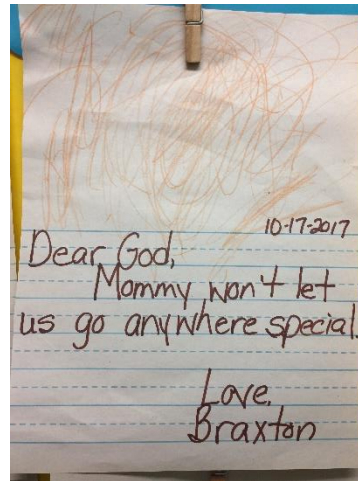 10-17-2017
Dear God,
Mommy won't let
us go anywhere special.
Love,
Braxton